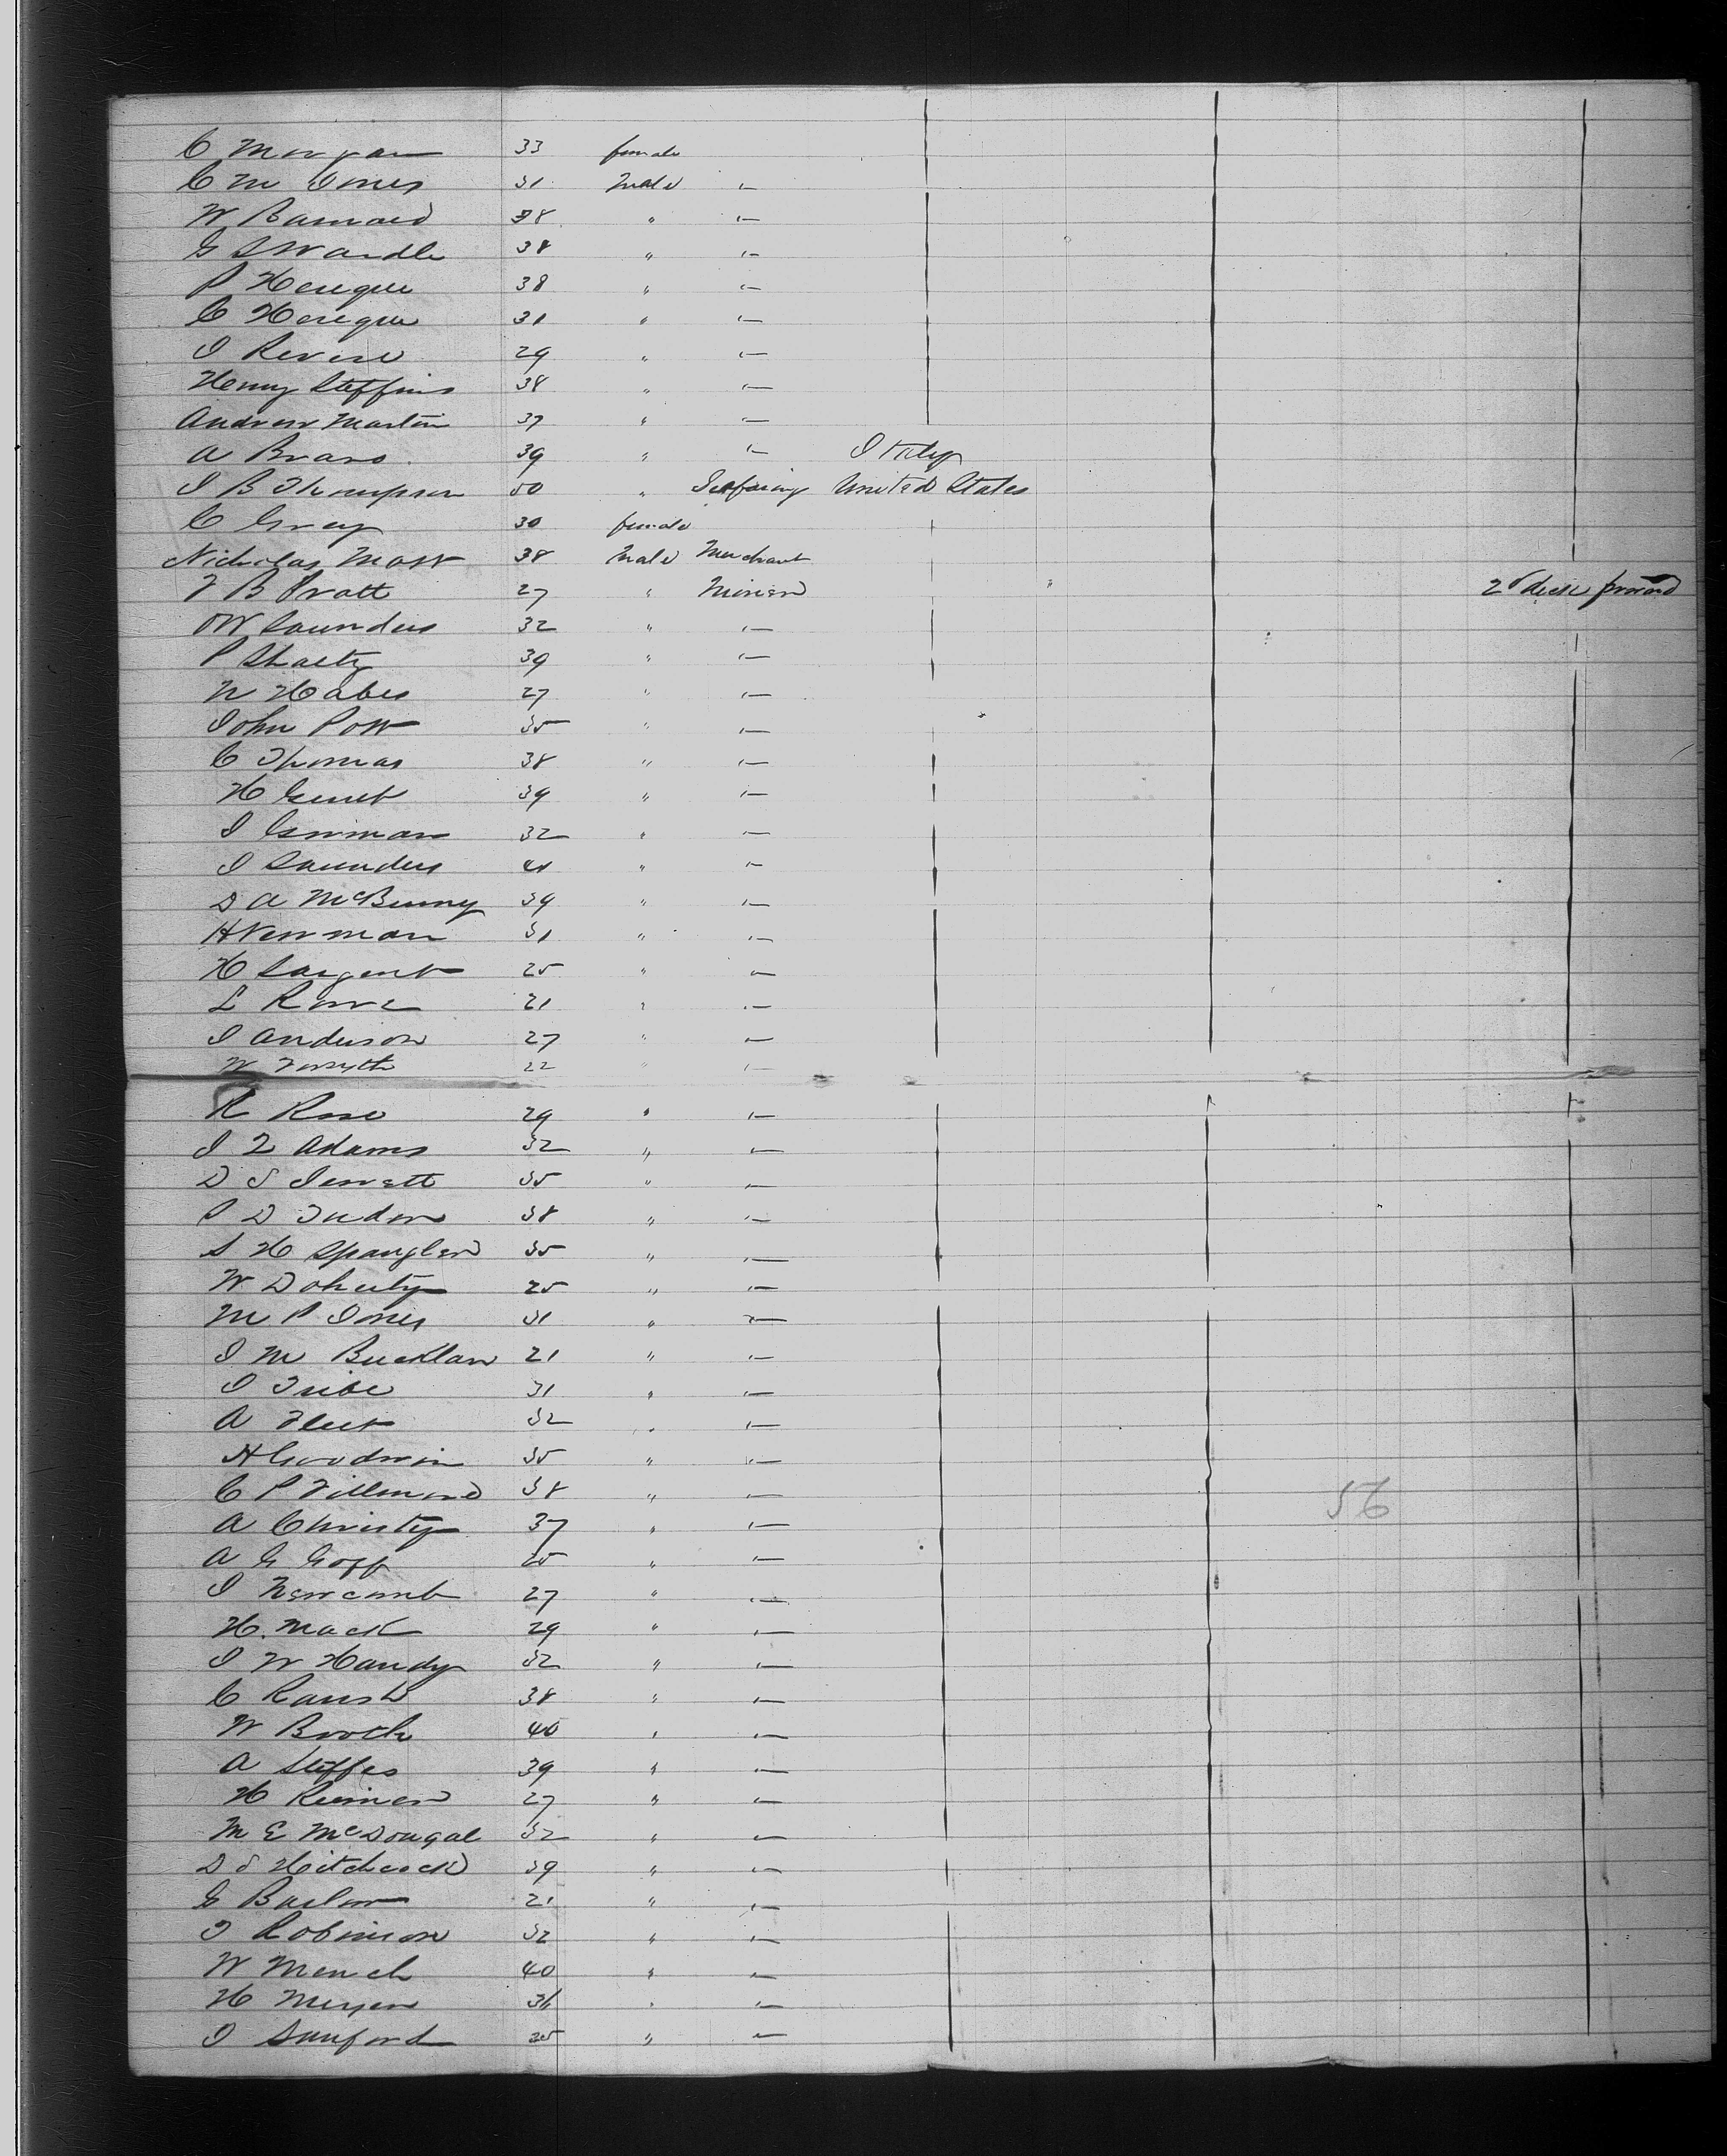 C Morgan 33 female
C M Jones 31 Male "—
W Barnard 38 " "—
G S Wardle 38 " "—
P Heneque 38 " "—
C Heneque 31 " "—
J Revere 29 " "—
Henry Steffins 38 " "—
Andrew Martin 37 " "—
A Bravo 39 " "— Italy
J B Thompson 50 " Seafaring United States
C Grey 30 female
Nicholas Moss 38 Male Merchant
F B Pratt 27 " Miner " 2d deck forward
O W Saunders 32 " "—
P Shasty 39 " "—
N Haber 27 " "—
John Pott 35 " "—
C Thomas 38 " "—
H 39 " "—
J 32 " "—
J Saunders 41 " "—
D A McBurny 39 " "—
H Newman 31 " "—
H Sargent 25 " "—
L Rowe 21 " "—
J Anderson 27 " "—
W Forsyth 22 " "—
R Rose 29 " "—
J Q Adams 32 " "—
D S Jewett 35 " "—
P D Tudor 38 " "—
S H Spangler 35 " "—
W Doherty 25 " "—
M P Jones 31 " "—
J M Bucklan 21 " "—
J Tribe 31 " "—
A Fleet 32 " "—
H Goodwin 35 " "—
C P Fillmore 38 " "— 56
A Christy 37 " "—
A G Goff 25 " "—
J Newcomb 27 " "—
H. Mack 29 " "—
J W Handy 32 " "—
C Raush 38 " "—
W Booth 40 " "—
A Steffes 39 " "—
H Reimer 27 " "—
M E McDougal 32 " "—
D S Hitchcock 39 " "—
G Barlow 21 " "—
J Robinson 32 " "—
W Mench 40 " "—
H Meyer 36 " "—
J Sanford 25 " "—